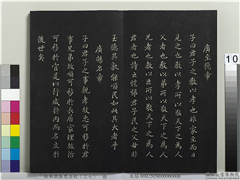 廣至德章
子曰君子之教以孝也非家至而日
見之也教以孝所以敬天下之為人
父者也教以弟所以敬天下之為人
兄者也教以臣所以敬天下之為人
君者也詩云愷悌君子民之父母非
至德其孰能順民如此其大者乎
廣揚名章
子曰君子之事親孝故忠可移於君
事兄弟故順可移於長居家理故治
可移於官是以行成於內而名立於
後世矣